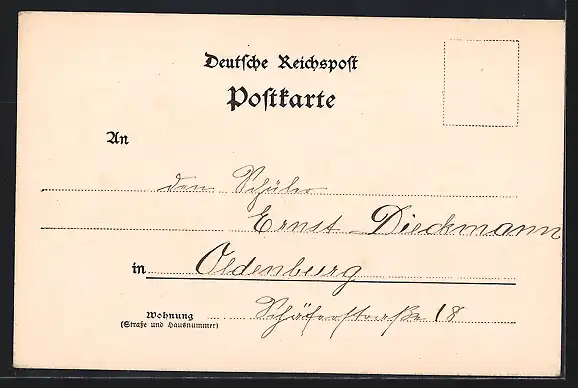 Deutsche Reichspost
Postkarte
An
den Schüler
Ernst Dieckmann
in Oldenburg
Wohnung Schäferstraße 18
(Straße und Hausnummer)